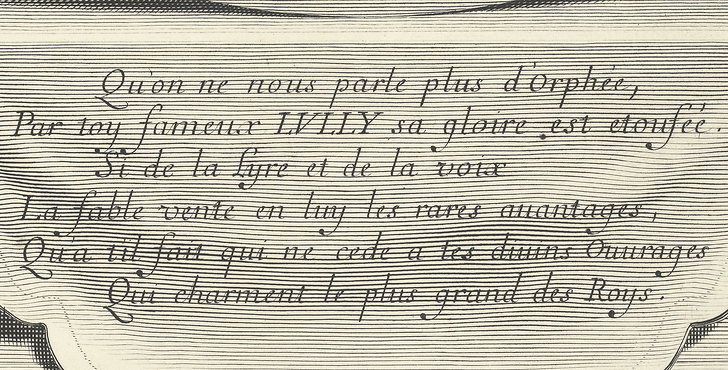 Qu'on ne nous parle plus d'Orphée,
Par toy fameux LVLLY sa gloire est etoufeé.
Si de la Lyre et de la voix
La fable vente en luy les rares auantages,
Qu'a t'il fait qui ne cede a tes diuins Ouurages
Qui charment le plus grand des Roys.